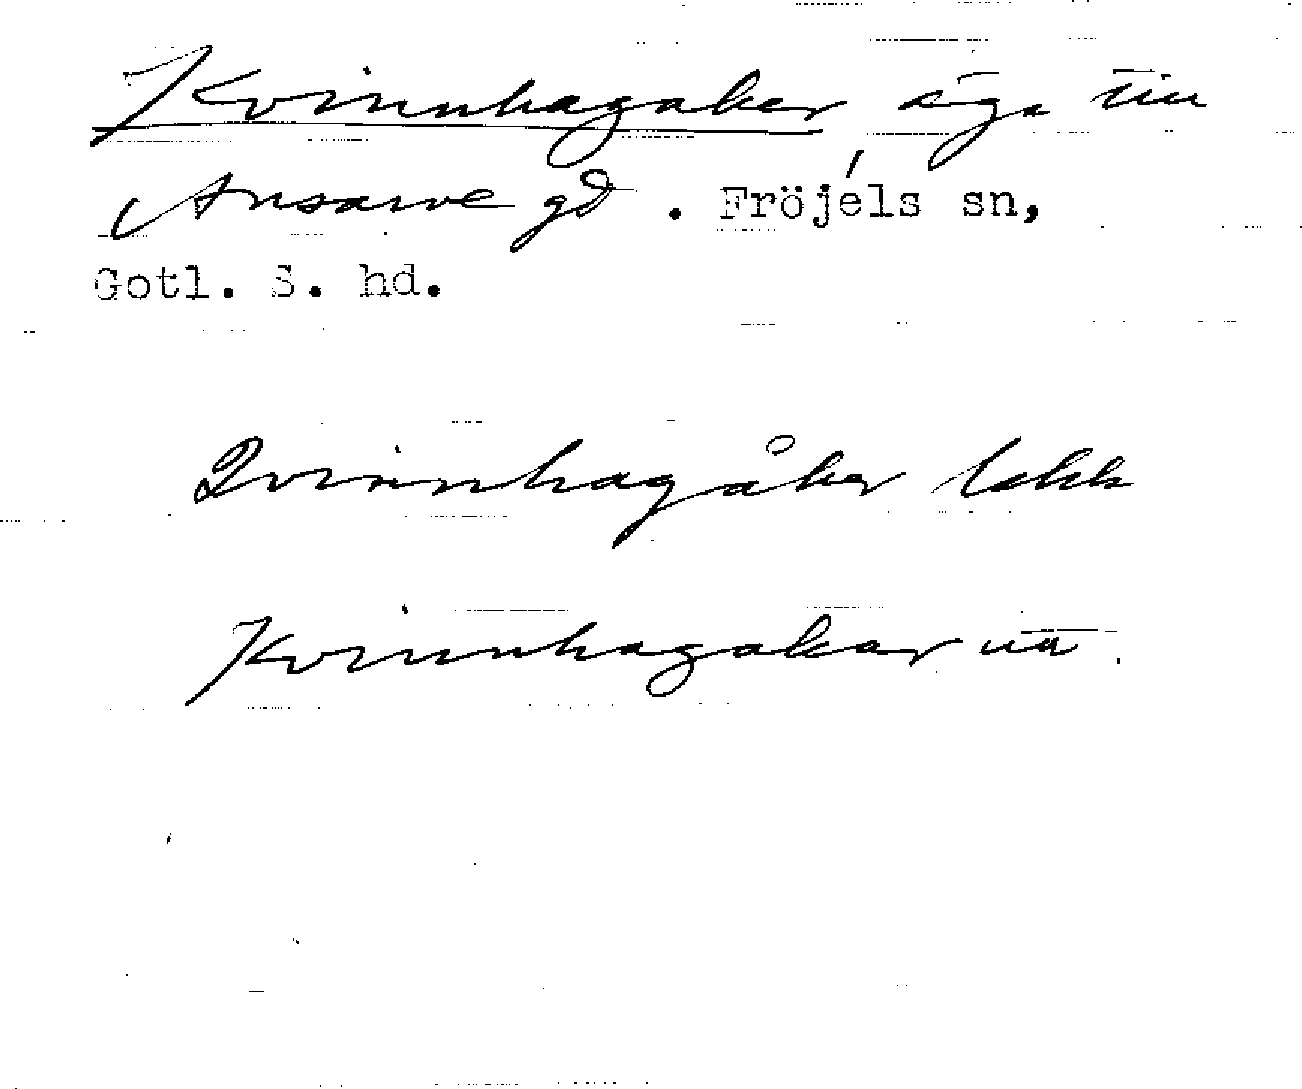 Kvinnhagaker äga till
Ansarve gd. Fröjéls sn,
Gotl. S. hd.
Qvinnhagåker
Kvinnhagakar